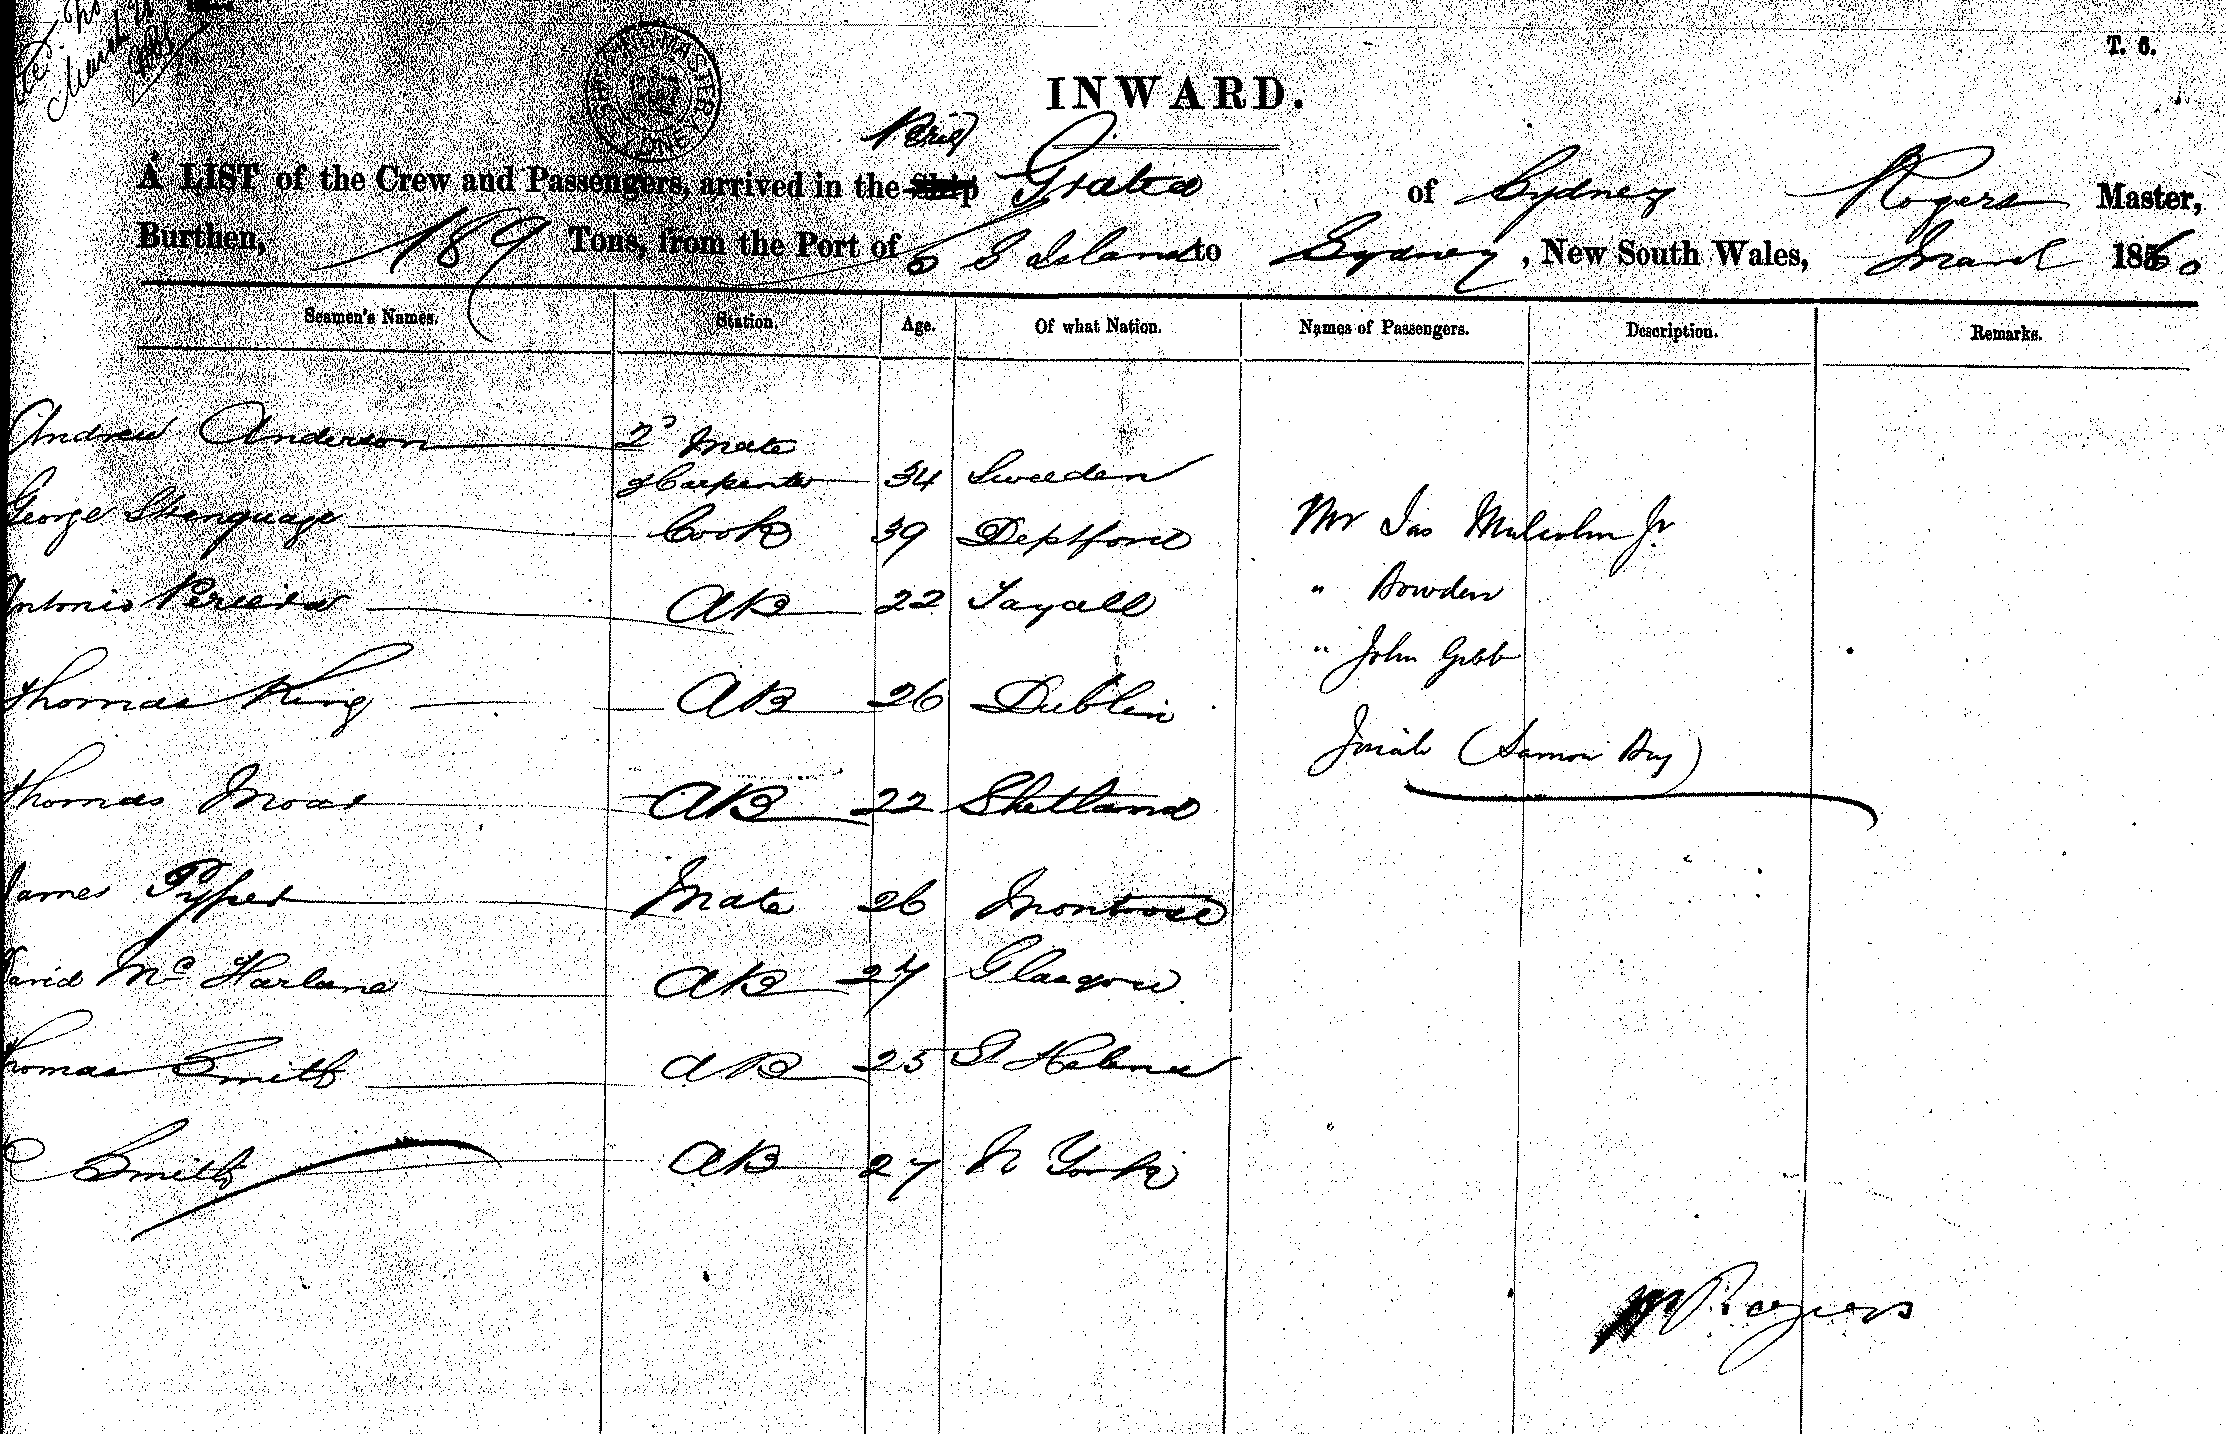 T. 6.
INWARD.
Brig
A LIST of the Crew and Passengers, arrived in the Ship of Sydney Rogers Master,
Burthen, 189 Tons, from the Port of S S Islands to Sydney, New South Wales, March 1860
Seamen's Names. Station. Age. Of what Nation. Names of Passengers. Description. Remarks.
Andrew Anderson 2d Mate
& Carpenter 34 Sweeden
George Cook 39 Deptford Mr Jas Malcolm Jr
Antonio AB 22 Fayall " Bowden
Thomas King AB 26 Dublin " John Gibb
Thomas Moar AB 22 Shetland
James Pyper Mate 26 Montrose
David Mc Harlane AB 27 Glasgow
Thomas Smith AB 25 St Helena
C Smith AB 27 N York
Rogers